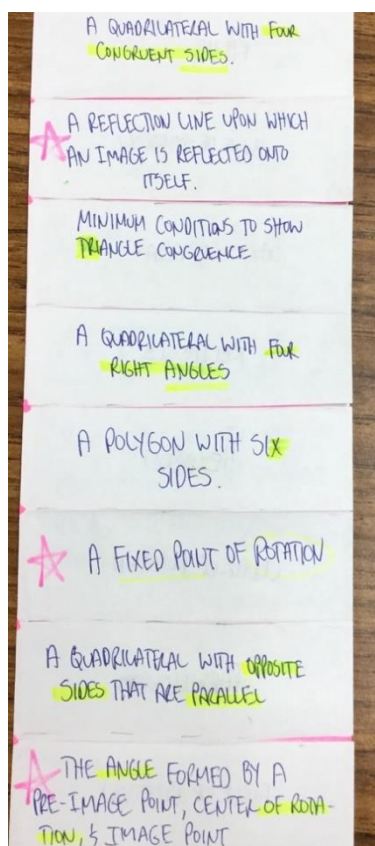 A QUADRILATERAL WITH FOUR
CONGRUENT SIDES.
A REFLECTION LINE UPON WHICH
AN IMAGE IS REFLECTED ONTO
ITSELF.
MINIMUM CONDITIONS TO SHOW
TRIANGLE CONGRUENCE
A QUADRILATERAL WITH FOUR
RIGHT ANGLES
A POLYGON WITH SIX
SIDES.
A FIXED POINT OF ROTATION
A QUADRILATERAL WITH OPPOSITE
SIDES THAT ARE PARALLEL
THE ANGLE FORMED BY A
PRE-IMAGE POINT, CENTER OF ROTA-
TION, & IMAGE POINT